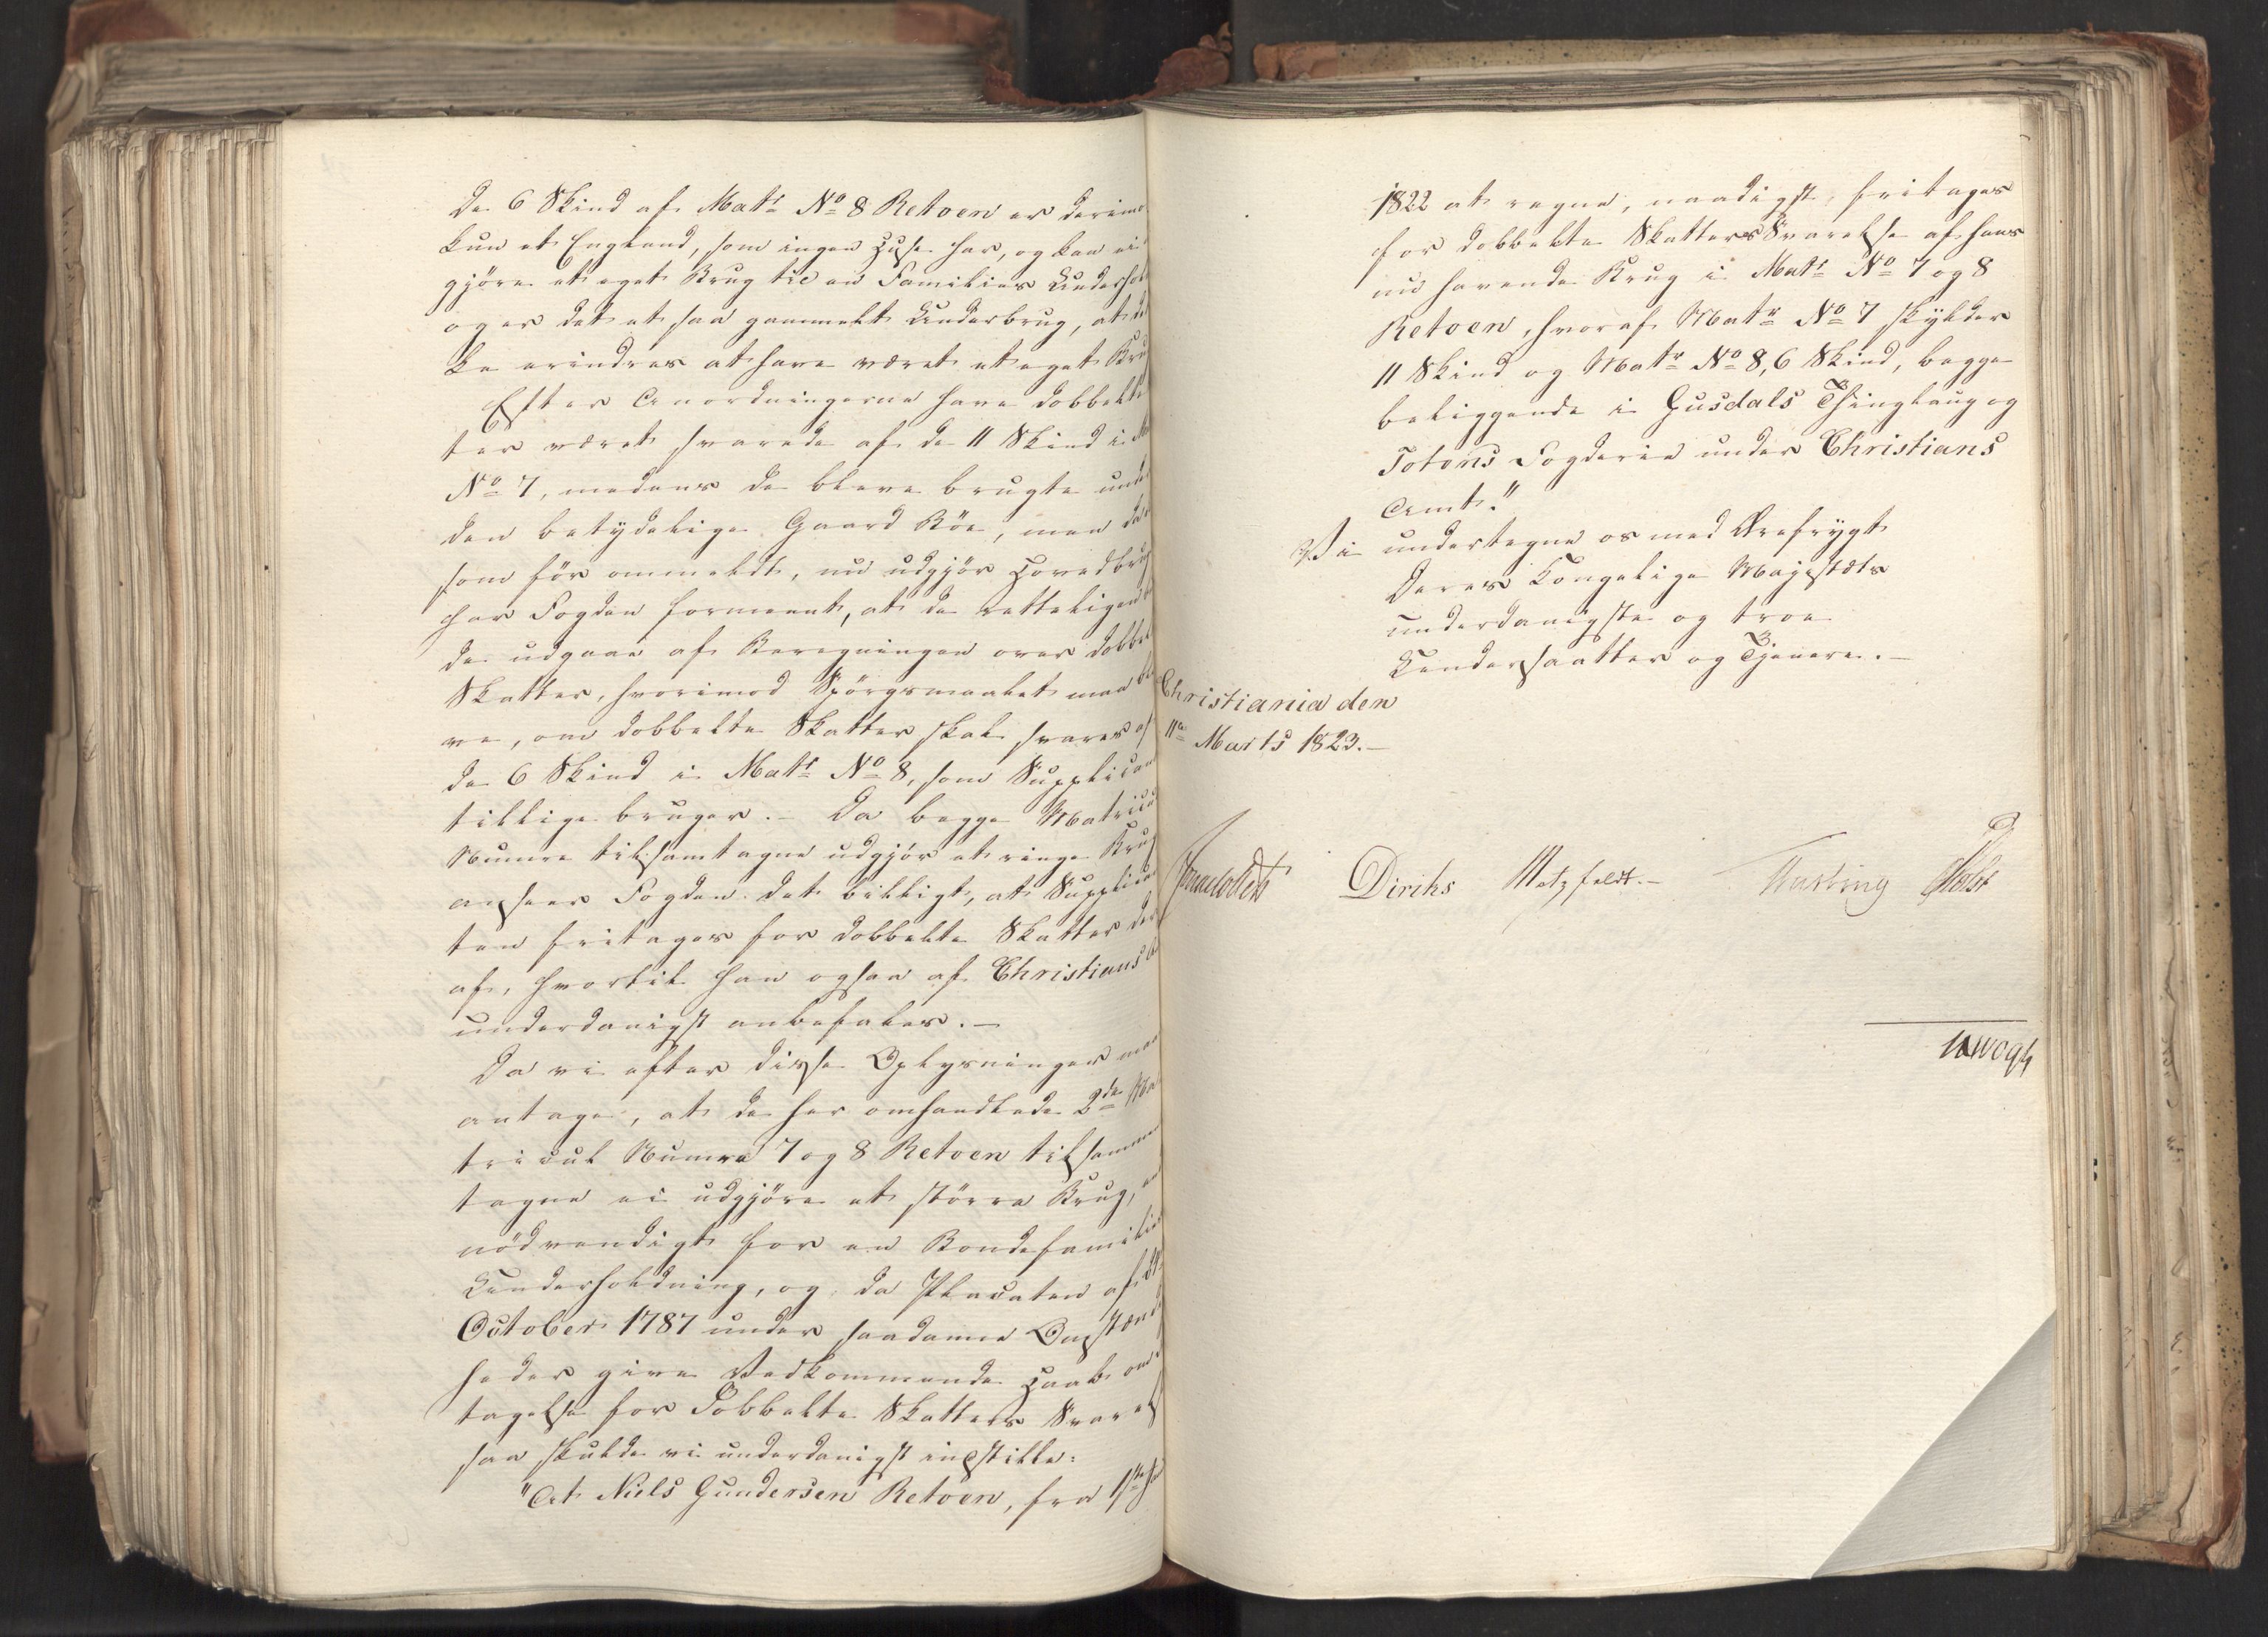 de 6 Skind af Matr No 8 Retven er derimo
kun et England, som ingen Huse har, og kan ei
gjöre et eget Brug til en Families Underhol
og er det et saa gammelt Underbrug, at de
ke erindres at have været et eget Bru
Efter Anordningerne have dobbelt
ter været svarede af de 11 Skind i
No 7, medens de bleve brugte unde
den betydelige Gaard Böe, men da
som för ommeldt, nu udgjör Hovedbru
har Fogden formeent, at de retteligen
de udgaae af Beregningen over dobbel
Skatter, hvorimod Spörgsmaalet maa bli
ve, om dobbelte Skatter skal svares af
de 6 Skind i Matr No 8, som Supplican
tillige bruger. - Da begge Matricu
Numre tilsamtagne udgjör et ringe Brug
ansees Fogden det billigt, at Supplica
ten fritages for dobbelte Skatter der
af, hvortil han ogsaa af Christians
underdanigst anbefales. -
Da vi efter disse Oplysninger maa
antage, at de her omhandlede 2de Ma
tricul Numre 7 og 8 Retven tilsammen
tagne ei udgjöre et större Brug, en
nödvendigt for en Bondefamilie
Underholdning, og da Placaten af
October 1787 under saadanne Omstænd
heder give Vedkommende Haab om
tagelse for Dobbelte Skatters Svarels
saa skulde vi underdanigst indstille:
"At Niels Gundersen Retvoen, fra 1ste Ja
1822 at regne, naadigst fritages
for dobbelte Skatters Svarelse af hans
nu havende Brug i Matr No 7 og 8
Retvoen, hvoraf Matr No 7 skylder
11 Skind og Matr No 8, 6 Skind, begge
beliggende i Gusdals Thinglaug og
Totens Fogderie under Christians
Amt."
Vi undertegne os med Ærefrygt
Deres Kongelige Majestæts
underdanigste og troe
Undersaatter og Tjenere. -
Christiania den
11te Marts 1823. -
Diriks Motzfeldt. - Holst